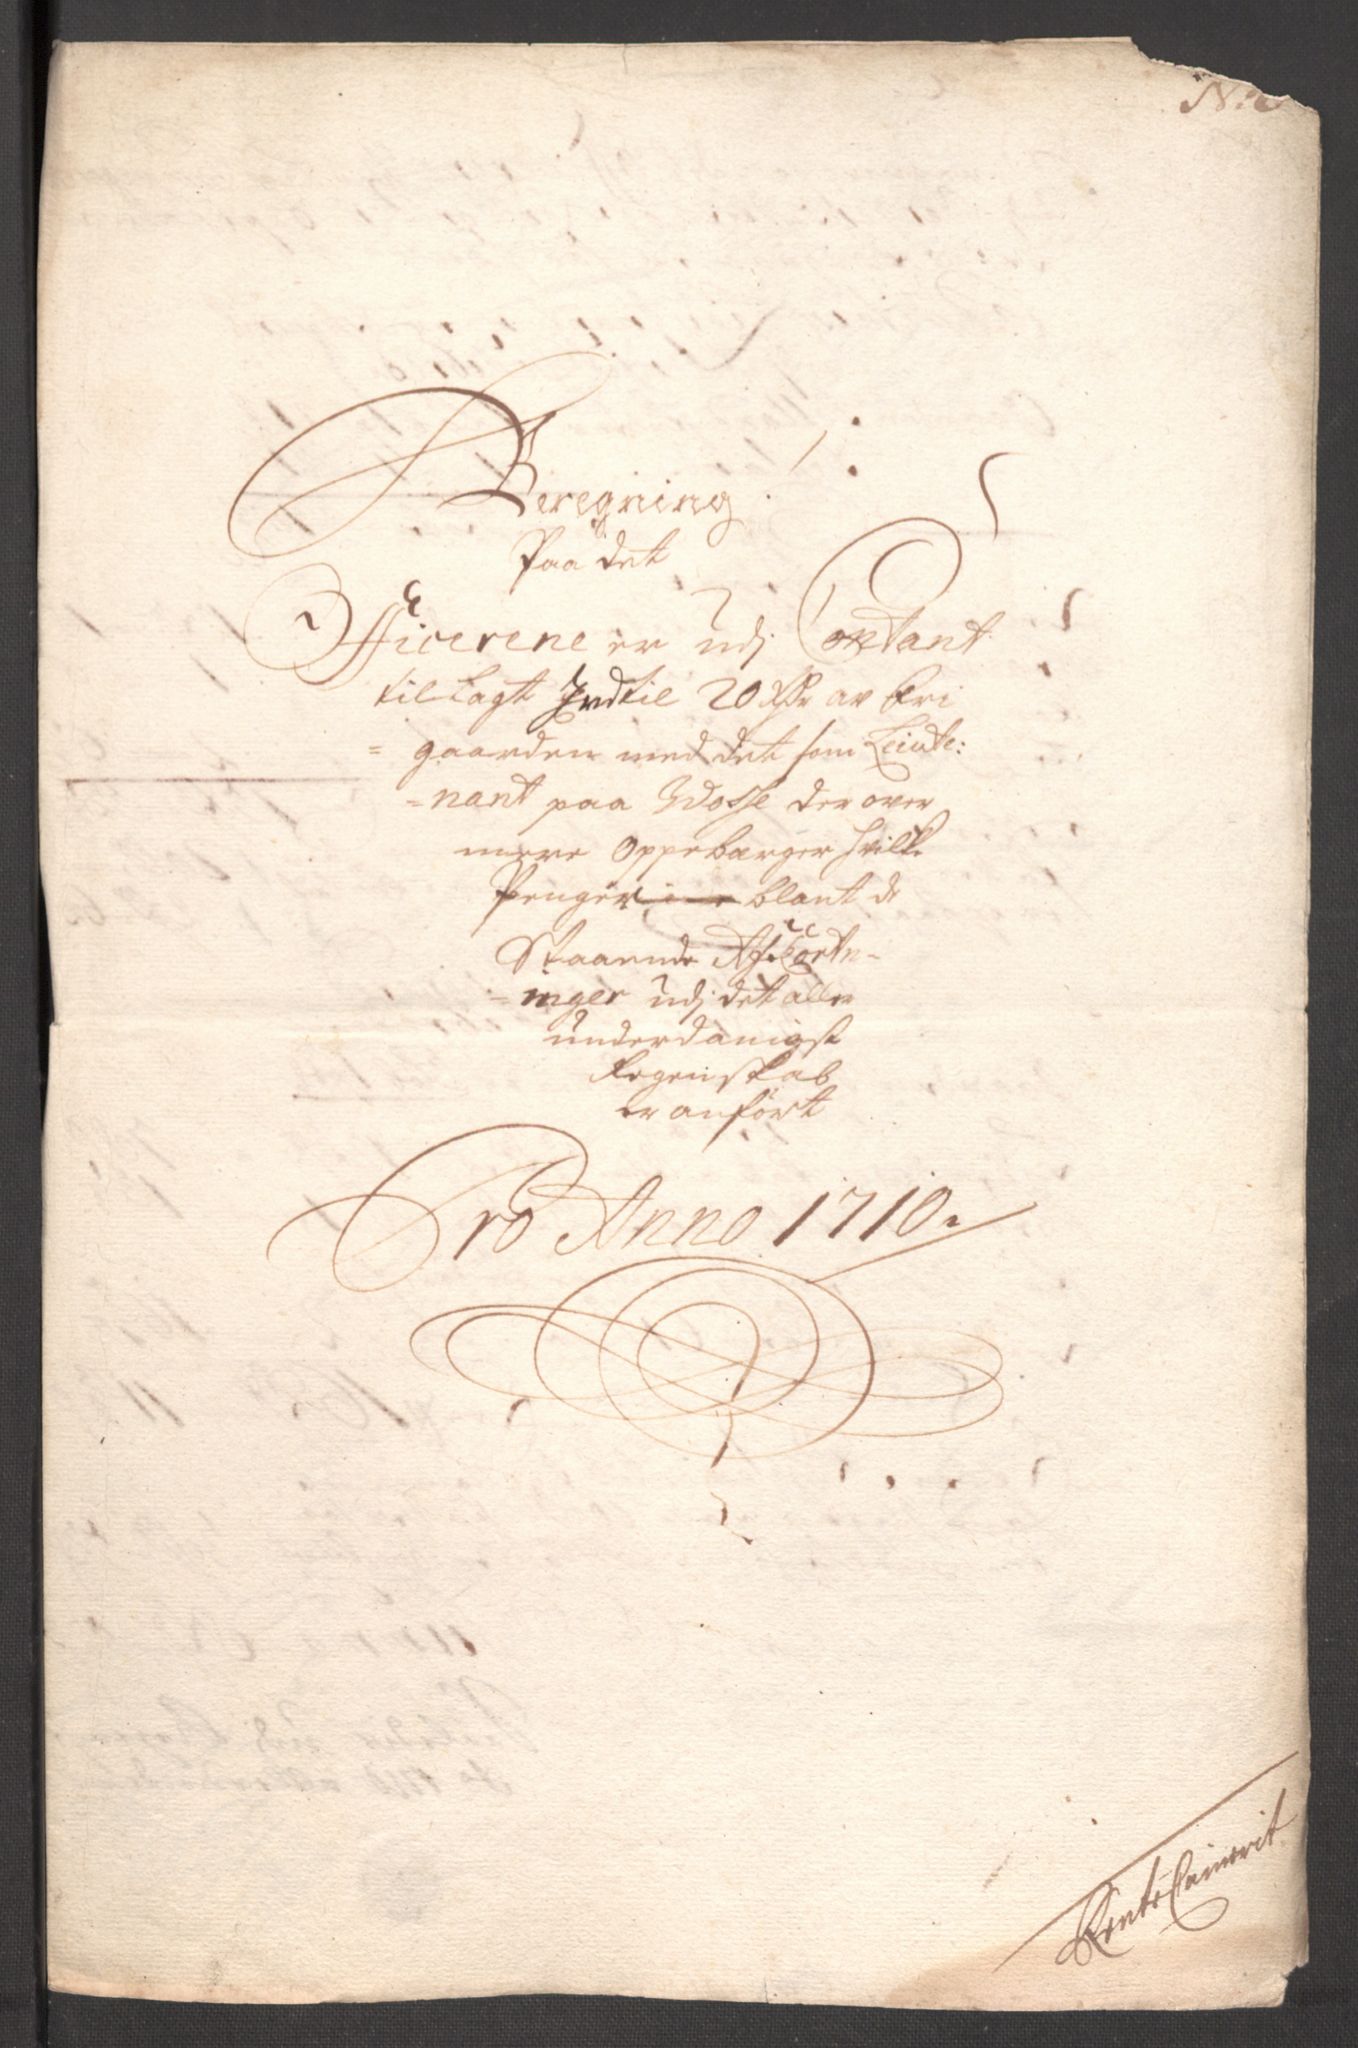 Beregning
Paa det
Officerene er udj Contant
tillagt Indtil 20 Rdr av Fri
= gaarden med det som Leiute:
= nant paa Wosse der over
mere Oppebærger hvilke
Penger blant de
Staaende Afkortn-
= inger udj det aller
underdanigst
Regenskab
er anført
Pro Anno 1710.
Rente Cammerit